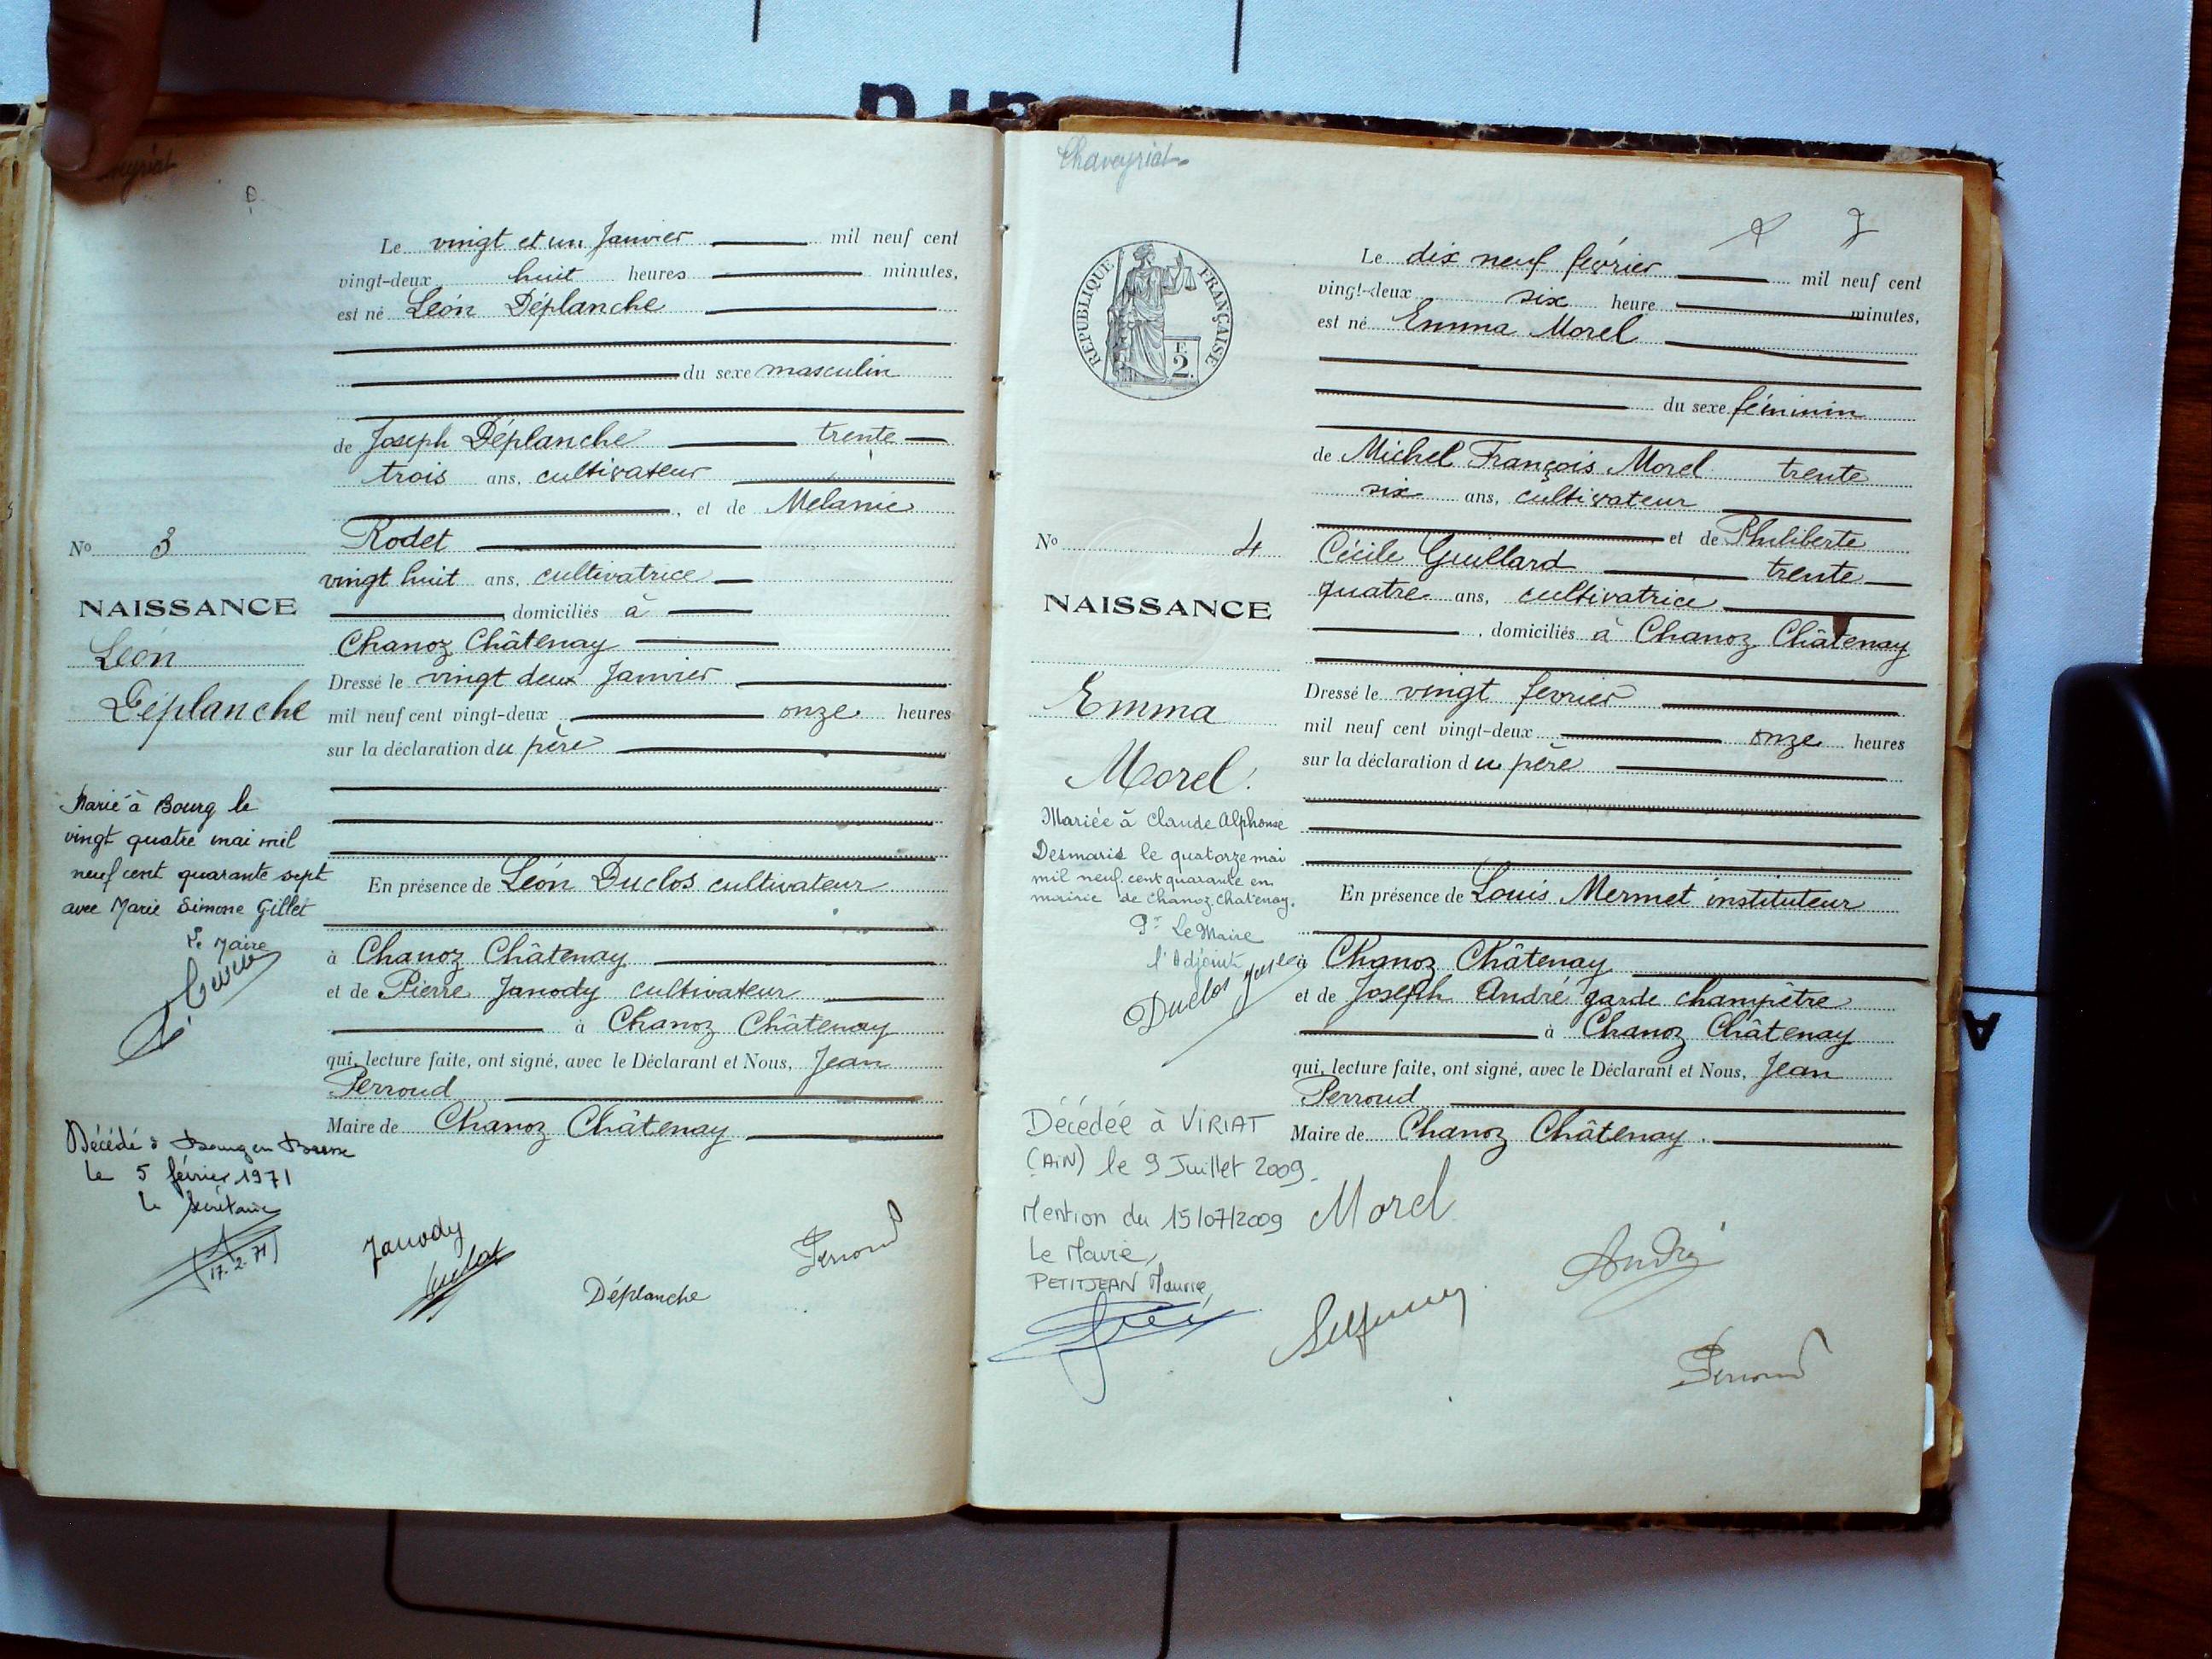 Le vingt et un Janvier mil neuf cent
vingt-deux huit heures minutes,
est né Léon Déplanche
du sexe masculin
de Joseph Déplanche trente
trois ans, cultivateur
, et de Mélanie
Rodet
vingt huit ans, cultivatrice
, domiciliés à
Chanoz Châtenay
Dressé le vingt deux Janvier
mil neuf cent vingt-deux onze heures
sur la déclaration du père
En présence de Léon Duclos cultivateur
à Chanoz Châtenay
et de Pierre Janody cultivateur
à Chanoz Châtenay
qui, lecture faite, ont signé, avec le Déclarant et Nous, Jean
Perroud
Maire de Chanoz Châtenay
No 3
NAISSANCE
Léon
Déplanche
Marié à Bourg le
vingt quatre mai mil
neuf cent quarante sept
avec Marie Simone Gillet
Le Maire
Décédé à Bourg en Bresse
le 5 février 1971
le Secrétaire
17.2.71
Janody
Déplanche
Perroud
Chaveyriat
RÉPUBLIQUE FRANÇAISE
F.
2.
Le dix neuf février mil neuf cent
vingt-deux six heure minutes,
est né Emma Morel
du sexe féminin
de Michel François Morel trente
six ans, cultivateur
et de Philiberte
Cécile Guillard trente
quatre ans, cultivatrice
, domiciliés à Chanoz Châtenay
Dressé le vingt février
mil neuf cent vingt-deux onze heures
sur la déclaration du père
En présence de Louis Mermet instituteur
à Chanoz Châtenay
et de Joseph André garde champêtre
à Chanoz Châtenay
qui, lecture faite, ont signé, avec le Déclarant et Nous, Jean
Perroud
Maire de Chanoz Châtenay.
No 4
NAISSANCE
Emma
Morel.
Mariée à Claude Alphonse
Desmaris le quatorze mai
mil neuf cent quarante en
mairie de Chanoz Chatenay.
Pr Le Maire
l'Adjoint
Duclos
Décédée à VIRIAT
(AiN) le 9 Juillet 2009.
Mention du 15/07/2009
Le Maire,
PETITJEAN Maurice,
Morel
André
Perroud
A